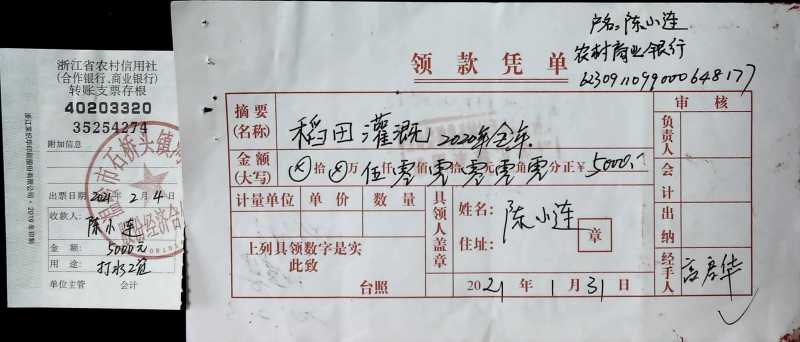 浙江省农村信用社
(合作银行、商业银行)
转账支票存根
40203320
35254274
附加信息
出票日期 2021年 2月 4日
收款人:
陈小连
金 额: 5000元
用 途: 打水工资
单位主管 会计
户名: 陈小连
农村商业银行
6230911099000648177
领款凭单
摘要
(名称)
稻田灌溉 2020年全年
金额
(大写)
⊗拾⊗万伍仟零佰零拾零元零角零分正¥5000.-
计量单位 单价 数量
上列具领数字是实
此致
台照
具领人盖章
姓名: 陈小连
住址:
章
2021年 1月 31日
审核
负责人
会计
出纳
经手人